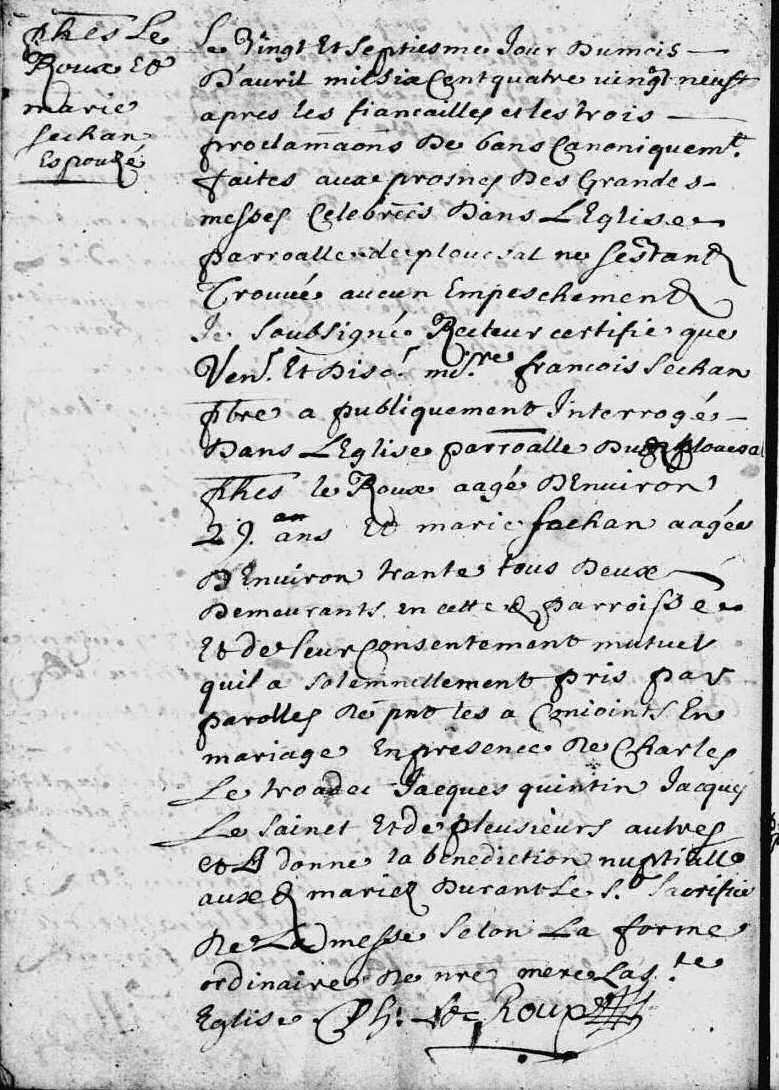 phes Le
Roux et
marie
sechan
Espouzé
Le Vingt Et Septiesme Jour Dumois
D'auril mil six Cent quatre vingt neuff
apres les fiancailles et les trois
proclamaons De bans Canoniquemt
faites aux prosnes Des Grandes
messes Celebrées Dans L'Eglise
parroalle de plouesal ne sestant
Trouué aucun Empeschement
Je Soubsigné Recteur certifie que
Ven. Et Disc. mis.re francois sechan
pbre a publiquement Interrogé
Dans L'Eglise parroalle Dud plouesal
phes le Roux aagé D'Enuiron
29. an ans Et marie sechan aagée
D'Enuiron trante tous Deux
Demeurants en cette parroisse
Et de leur Consentement mutuel
quil a solemnellement pris par
parolles De pnt les a Conioints En
mariage En presence De Charles
Le troadec Jacques quintin Jacques
Le sainct Et de plusieurs autres
et donne la benediction nuptialle
aux mariez Durant Le S.t Sacrifice
De La messe selon La forme
ordinaire De nre mere La S.te
Eglise. Ph. Le Roux